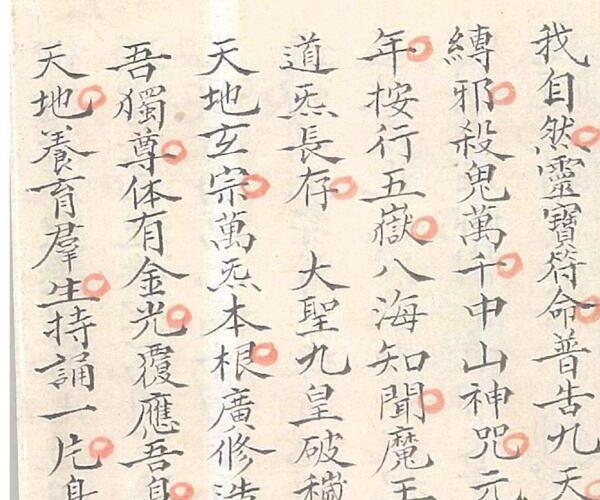 我自然靈寶符命普告九天
縛邪殺鬼萬千中山神咒元
年按行五嶽八海知聞魔王
道炁長存 大聖九皇破穢
天地玄宗萬炁本根廣修浩
吾獨尊体有金光覆應吾身
天地養育羣生持誦一片身